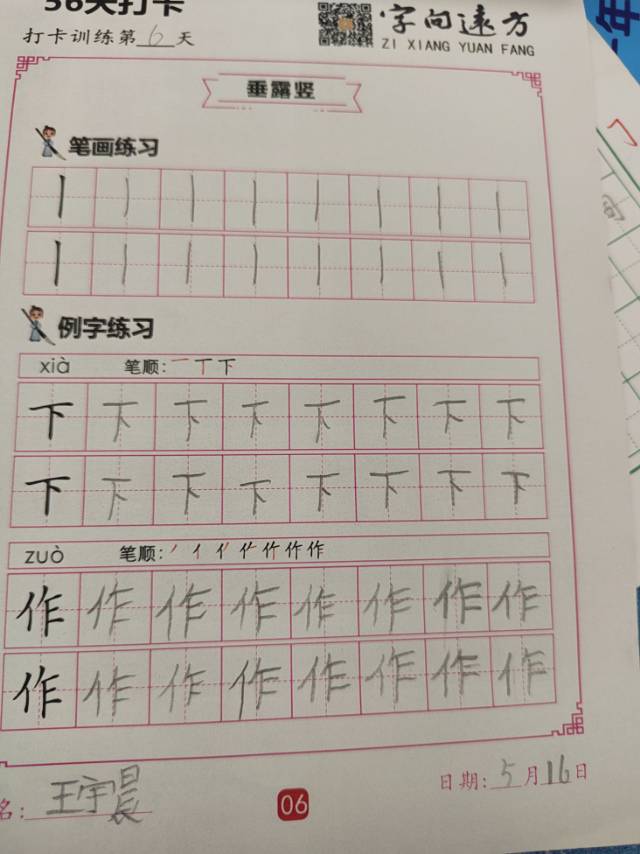 56天打卡
打卡训练第6天
字向远方
ZI XIANG YUAN FANG
垂露竖
笔画练习
丨丨丨丨丨丨丨丨
丨丨丨丨丨丨丨丨
例字练习
xià 笔顺:一丅下
下下下下下下下下
下下下下下下下下
zuò 笔顺:
作作作作作作作作
作作作作作作作作
名:王宇晨
06
日期:5月16日